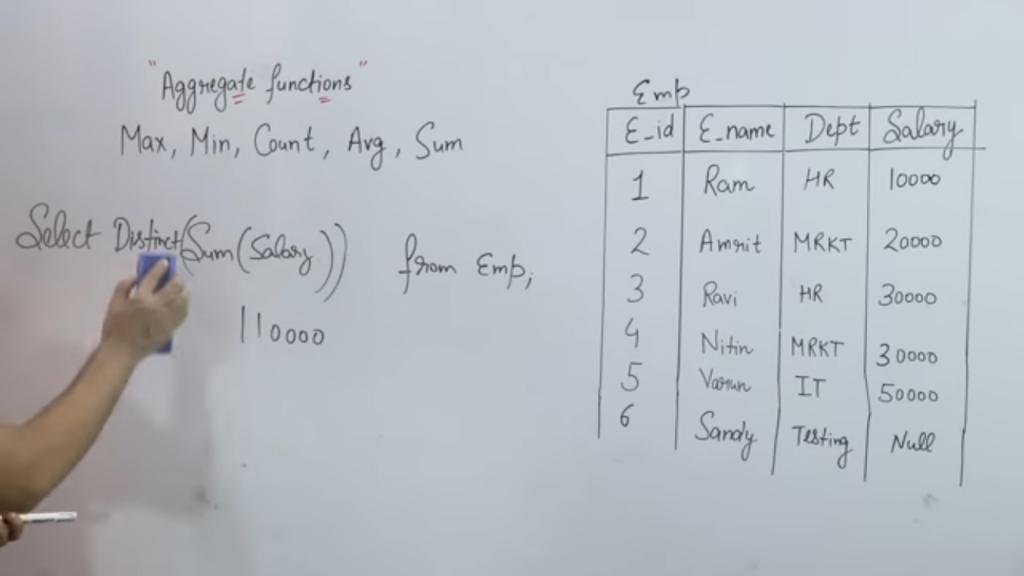 "Aggregate functions"
Max, Min, Count, Avg, Sum
Select Distinct(Sum(Salary)) from Emp;
110000
Emp
E_id E_name Dept Salary
1 Ram HR 10000
2 Amrit MRKT 20000
3 Ravi HR 30000
4 Nitin MRKT 30000
5 Varun IT 50000
6 Sandy Testing Null